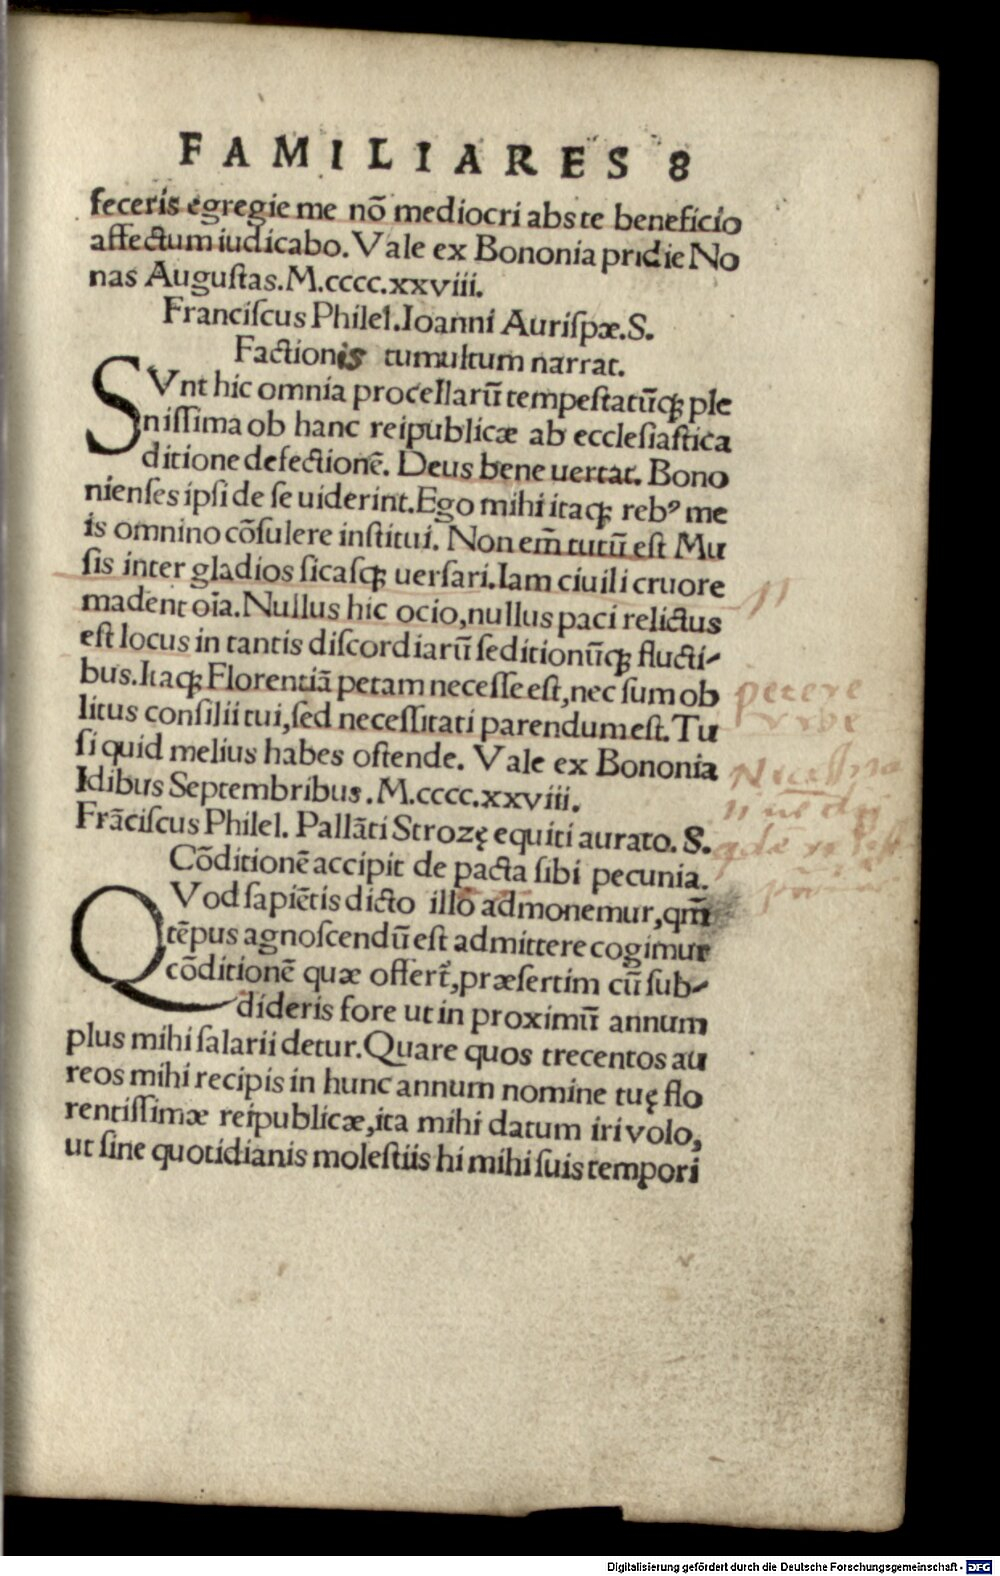 FAMILIARES 8
feceris egregie me nõ mediocri abs te beneficio
affectum iudicabo. Vale ex Bononia pridie No
nas Auguſtas. M.cccc.xxviii.
Franciſcus Philel. Ioanni Auriſpæ. S.
Factionis tumultum narrat.
SVnt hic omnia procellarũ tempeſtatũq; ple
niſſima ob hanc reipublicæ ab eccleſiaſtica
ditione defectionẽ. Deus bene uertat. Bono
nienſes ipſi de ſe uiderint. Ego mihi itaq; rebꝰ me
is omnino cõſulere inſtitui. Non em̃ tutũ eſt Mu
ſis inter gladios ſicaſq; uerſari. Iam ciuili cruore
madent oĩa. Nullus hic ocio, nullus paci relictus
eſt locus in tantis diſcordiarũ ſeditionũq; flucti-
bus. Itaq; Florentiã petam neceſſe eſt, nec ſum ob
litus conſilii tui, ſed neceſſitati parendum eſt. Tu
ſi quid melius habes oſtende. Vale ex Bononia
Idibus Septembribus. M.cccc.xxviii.
Frãciſcus Philel. Pallãti Strozę equiti aurato. S.
Cõditionẽ accipit de pacta ſibi pecunia.
QVod ſapiẽtis dicto illo admonemur, qm̃
tẽpus agnoſcendũ eſt admittere cogimur
cõditionẽ quæ offert̃, præſertim cũ ſub-
dideris fore ut in proximũ annum
plus mihi ſalarii detur. Quare quos trecentos au
reos mihi recipis in hunc annum nomine tuę flo
rentiſſimæ reipublicæ, ita mihi datum iri volo,
ut ſine quotidianis moleſtiis hi mihi ſuis tempori
petere
vrbe
Digitalisierung gefördert durch die Deutsche Forschungsgemeinschaft - DFG